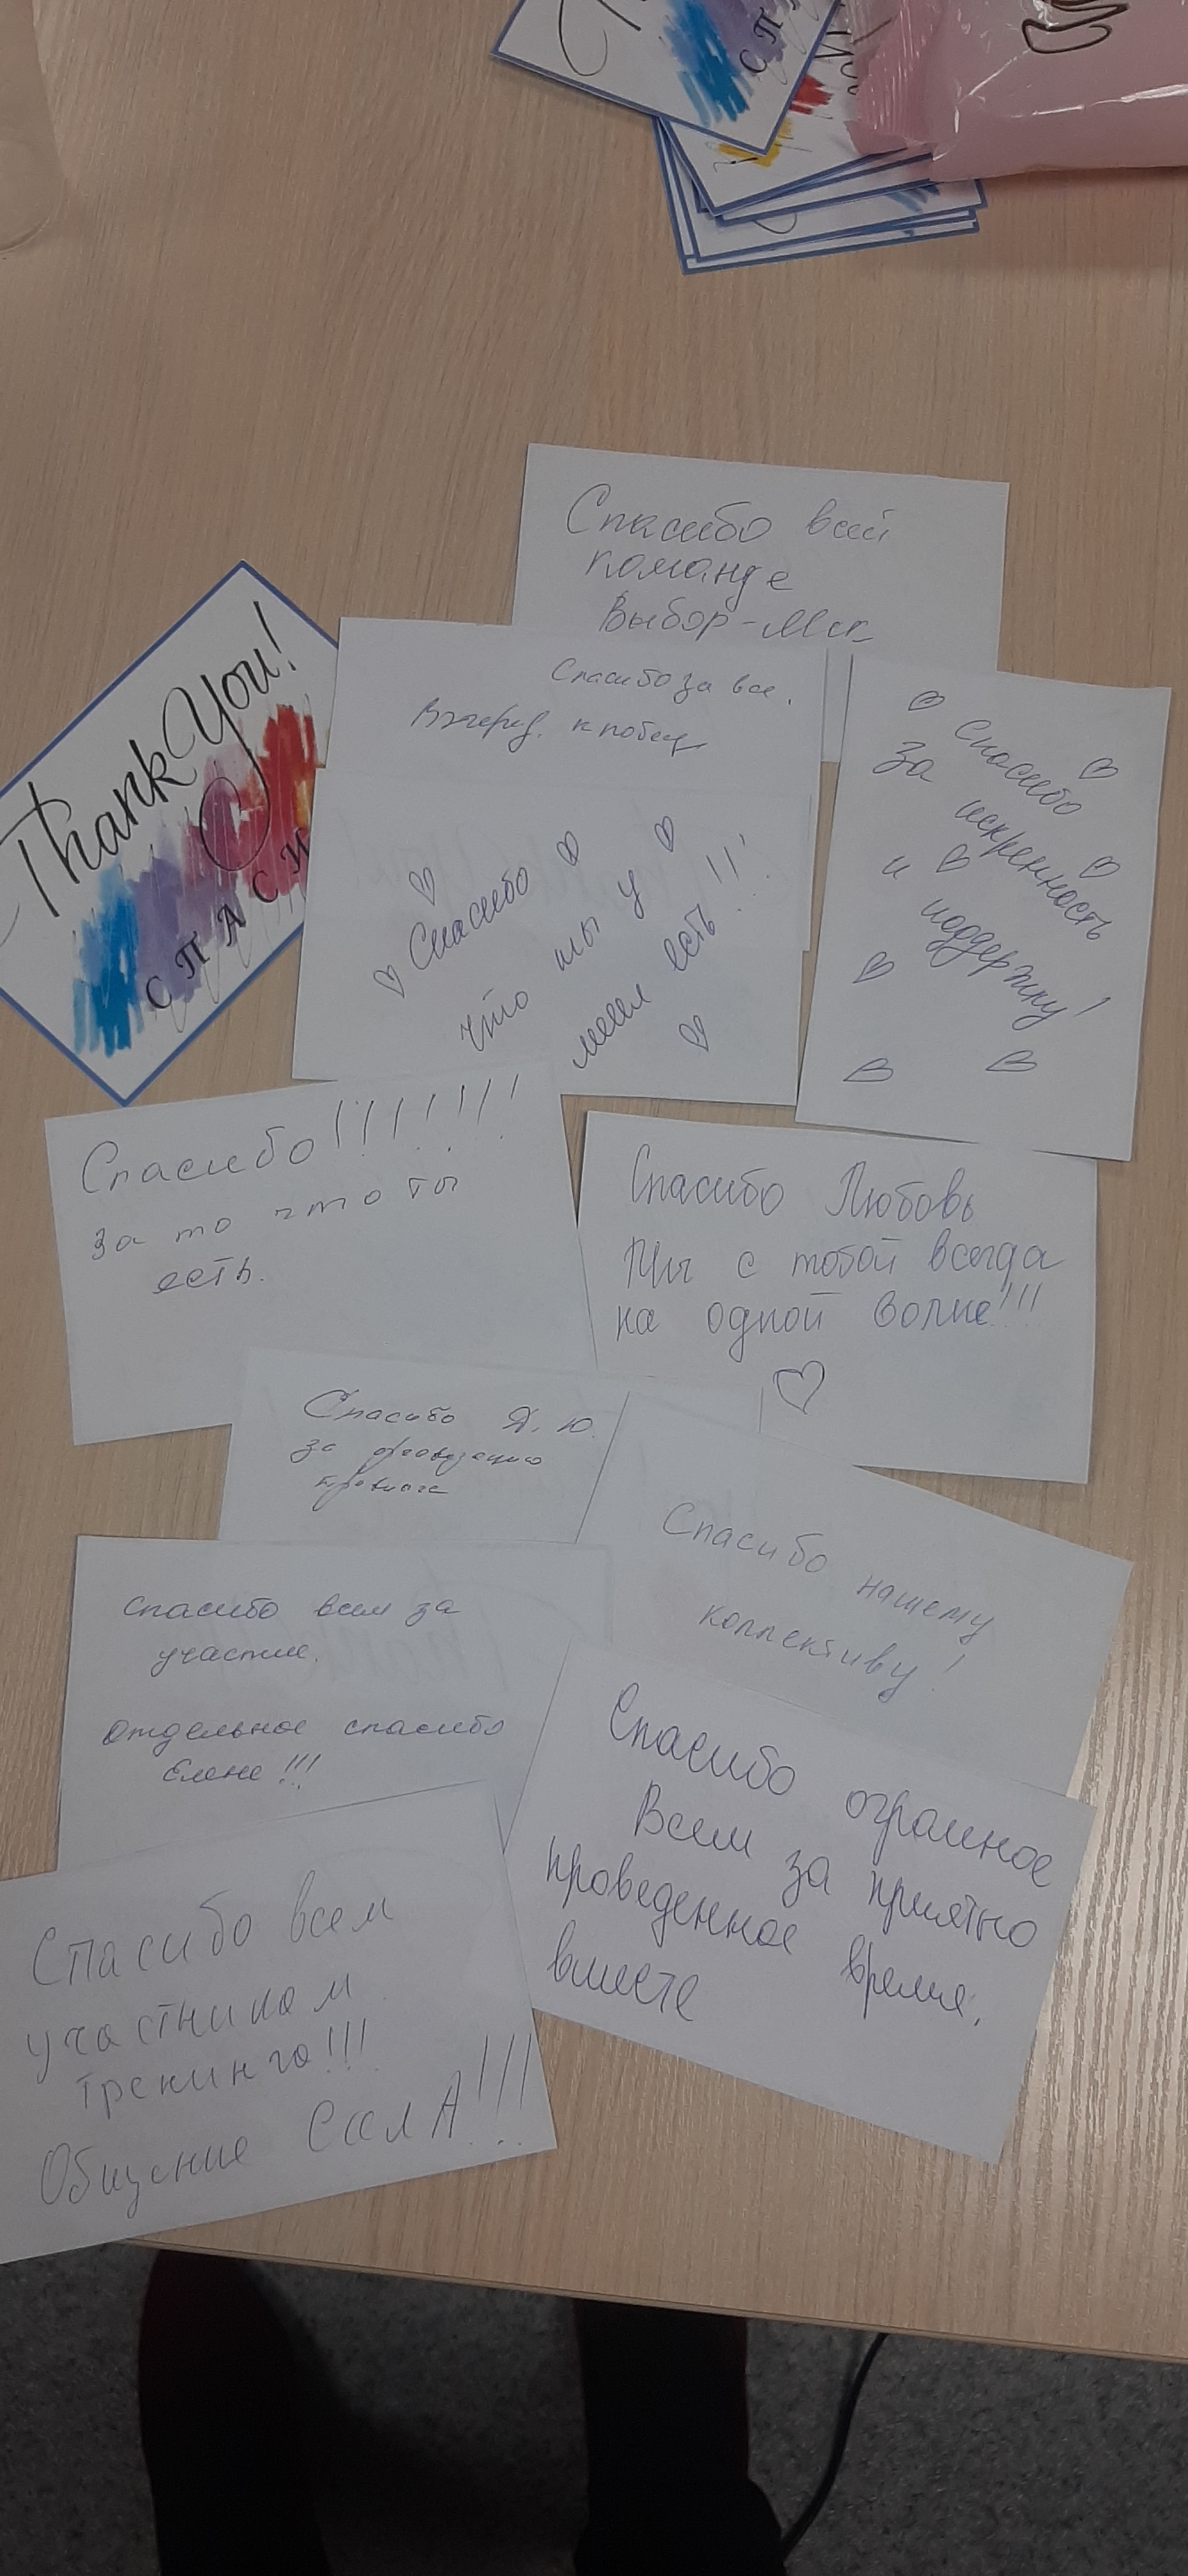 Спасибо всей
команде
Выбор-Мск
Спасибо за все.
Вперед. к победе
Thank You!
СПАСИ
Спасибо
за искренность
и поддержку!
Спасибо
что мы у
меня есть!!!
Спасибо!!!!!!!
за то что ты
есть.
Спасибо Любовь
Мы с тобой всегда
на одной волне!!!
Спасибо Я. Ю.
за организацию
Спасибо нашему
коллективу!
спасибо всем за
участие.
Отдельное спасибо
Елене!!!
Спасибо огромное
Всем за приятно
проведенное время.
вместе
Спасибо всем
участникам
тренинга!!!
Общение СилА!!!